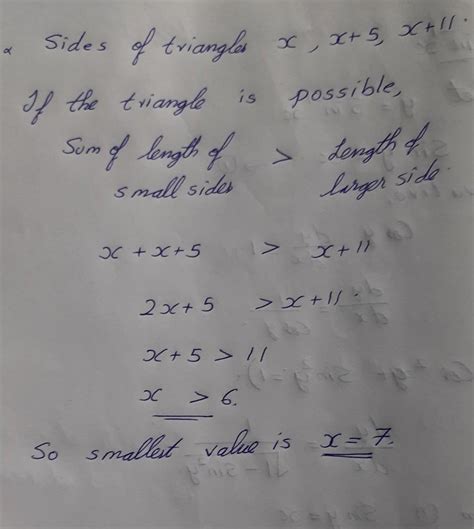 Sides of triangles x, x+5, x+11.
If the triangle is possible,
Sum of length of small sides > Length of larger side.
x + x+5 > x+11
2x+5 > x+11.
x+5 > 11
x > 6.
So smallest value is x = 7.